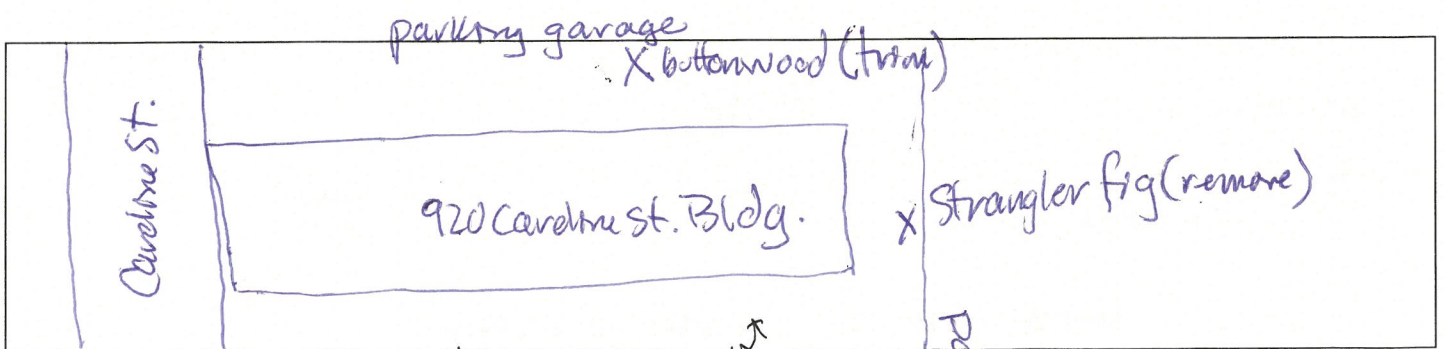 parking garage
X buttonwood (trim)
Caroline St.
920 Caroline St. Bldg.
X Strangler fig (remove)